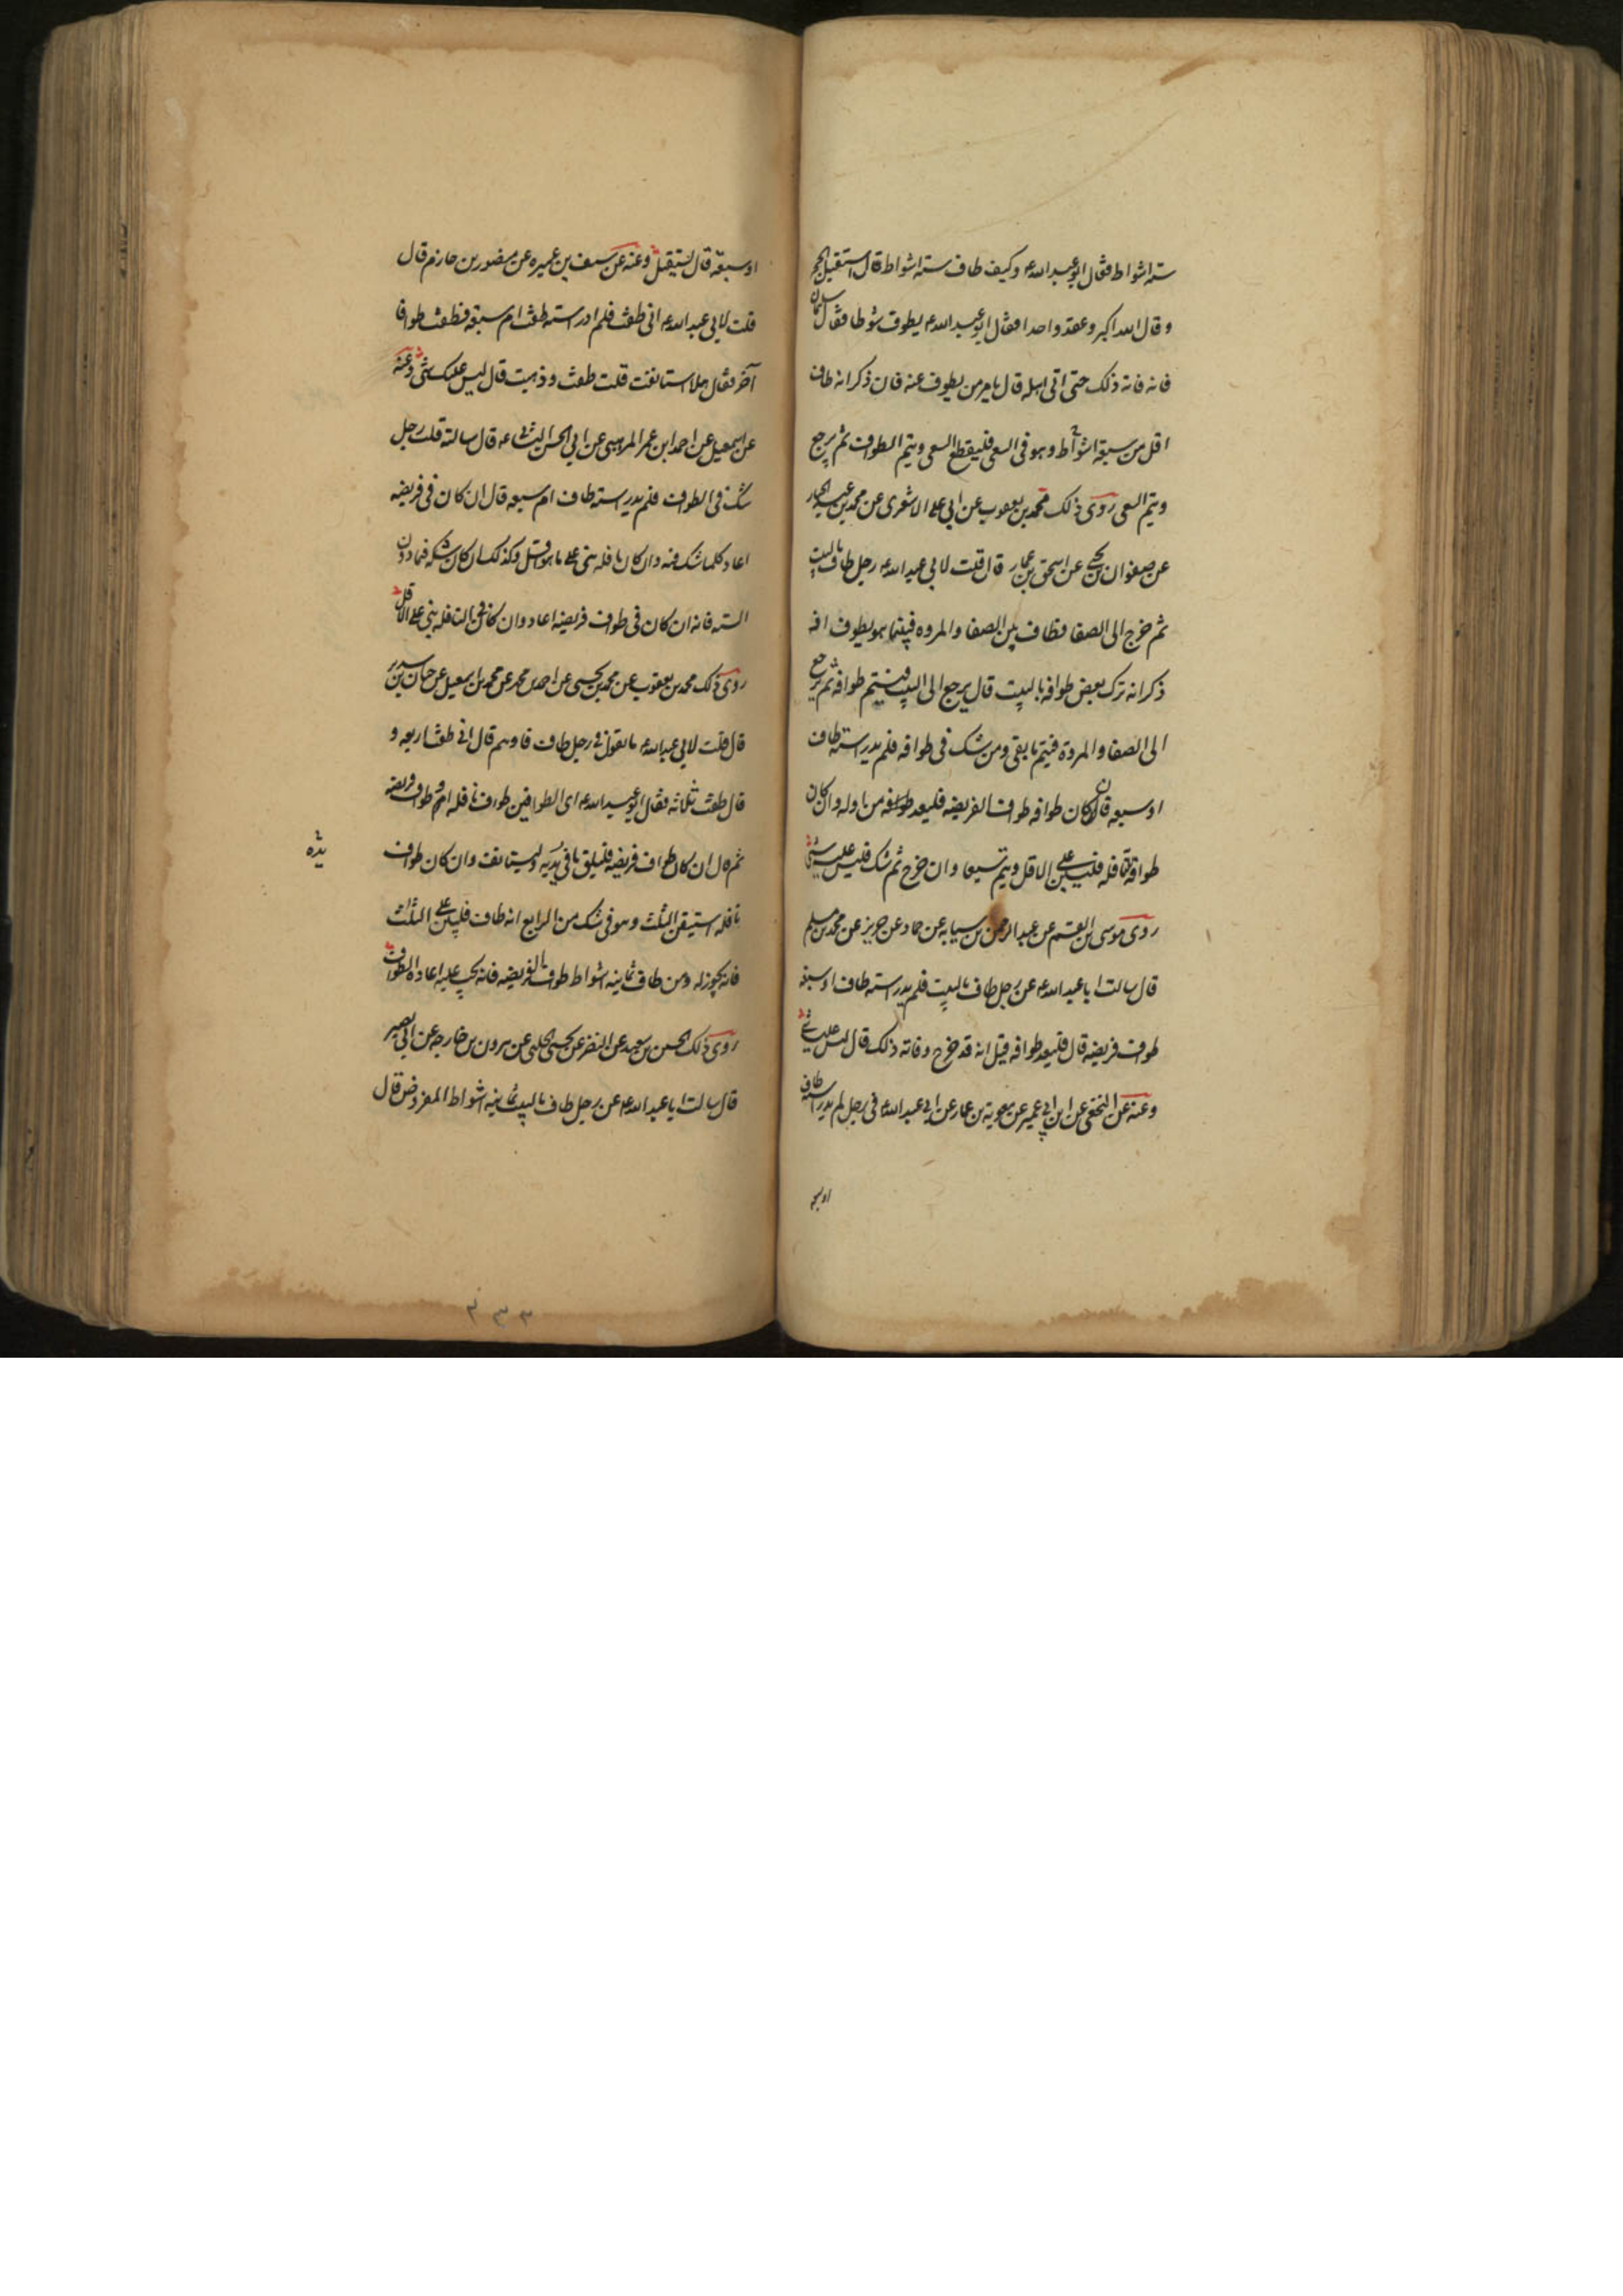 ستة اشواط فقال ابو عبد الله ع وكيف طاف ستة اشواط قال استقبل الحجر
وقال الله اكبر وعقد واحدا فقال ابو عبد الله ع يطوف شوطا فقال سليمان
فانه فاته ذلك حتى اتى اهله قال يامر من يطوف عنه فان ذكر انه طاف
اقل من سبعة اشواط وهو في السعى فليقطع السعى ويتم الطواف ثم يرجع
ويتم السعى روى ذلك محمد بن يعقوب عن ابي على الاشعرى عن محمد بن عبد الجبار
عن صفوان بن يحيى عن اسحق بن عمار قال قلت لابي عبد الله ع رجل طاف بالبيت
ثم خرج الى الصفا فطاف بين الصفا والمروه فبينما هو يطوف اذ
ذكر انه ترك بعض طوافه بالبيت قال يرجع الى البيت فيتم طوافه ثم يرجع
الى الصفا والمروة فيتم ما بقى ومن شك في طوافه فلم يدر ستة طاف
او سبعه فان كان طوافه طواف الفريضه فليعد طوافه من اوله وان كان
طوافه نافله فليبن على الاقل ويتم سبعا وان خرج ثم شك فليس عليه شئ
روى موسى بن القسم عن عبد الرحمن بن سيابه عن حماد عن حريز عن محمد بن مسلم
قال سالت ابا عبد الله ع عن رجل طاف بالبيت فلم يدر استه طاف او سبعه
طواف فريضه قال فليعد طوافه قيل انه قد خرج وفاته ذلك قال ليس عليه شئ
وعنه عن النخعى عن ابن ابي عمير عن معوية بن عمار عن ابي عبد الله ع في رجل لم يدر استه طاف
او سبعه
او سبعة قال يستقبل وعنه عن سيف بن عميره عن منصور بن حازم قال
قلت لابي عبد الله ع اني طفت فلم ادر استه طفت ام سبعة فطفت طوافا
آخر فقال هلا استانفت قلت طفت وذهبت قال ليس عليك شئ وعنه
عن اسمعيل عن احمد ابن عمر المرهبي عن ابي الحسن الثاني ع قال سالته قلت رجل
شك في الطواف فلم يدر استه طاف ام سبعه قال ان كان في فريضه
اعاد كلما شك فيه وان كان نافله بنى على ما هو اقل وكذلك ان كان شكه فيما دون
السته فانه ان كان في طواف فريضه اعاد وان كان في النافله بنى على الاقل
روى ذلك محمد بن يعقوب عن محمد بن يحيى عن احمد بن محمد عن محمد بن اسمعيل عن حنان بن سدير
قال قلت لابي عبد الله ع ما تقول في رجل طاف فاوهم قال اني طفت اربعه و
قال طفت ثلاثه فقال ابو عبد الله ع اى الطوافين طواف نافله ام طواف فريضه
ثم قال ان كان طواف فريضه فليلق ما في يديه وليستانف وان كان طواف
يديه
نافله استيقن الثلث وهو في شك من الرابع انه طاف فليبن على الثلث
فانه يجوز له ومن طاف ثمانيه اشواط طواف الفريضه فانه يجب عليه اعادة الطواف
روى ذلك الحسين بن سعيد عن النضر عن يحيى الحلبى عن هرون بن خارجه عن ابي بصير
قال سالت ابا عبد الله ع عن رجل طاف بالبيت ثمانيه اشواط المفروض قال
٢٣٣